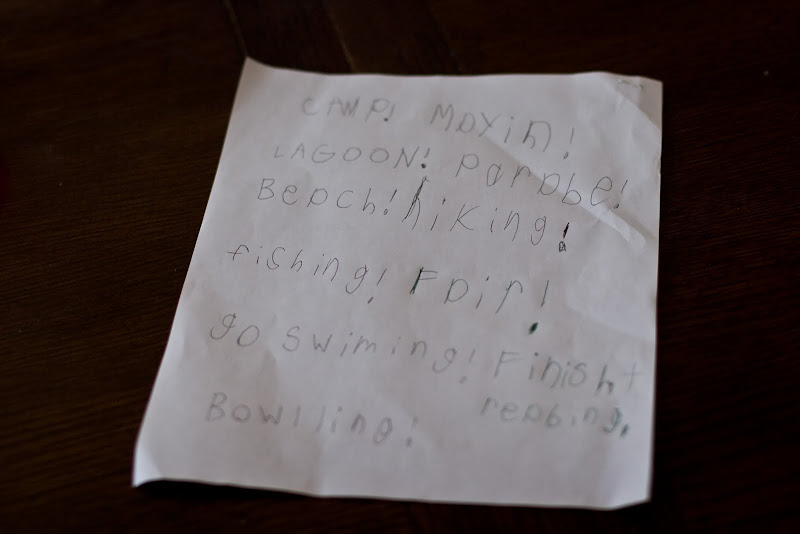 CAMP! Moyin!
LAGOON! Parabe!
Beach! hiking!
fishing! Fair!
go swiming! Finisht
Bowlling! reabing.